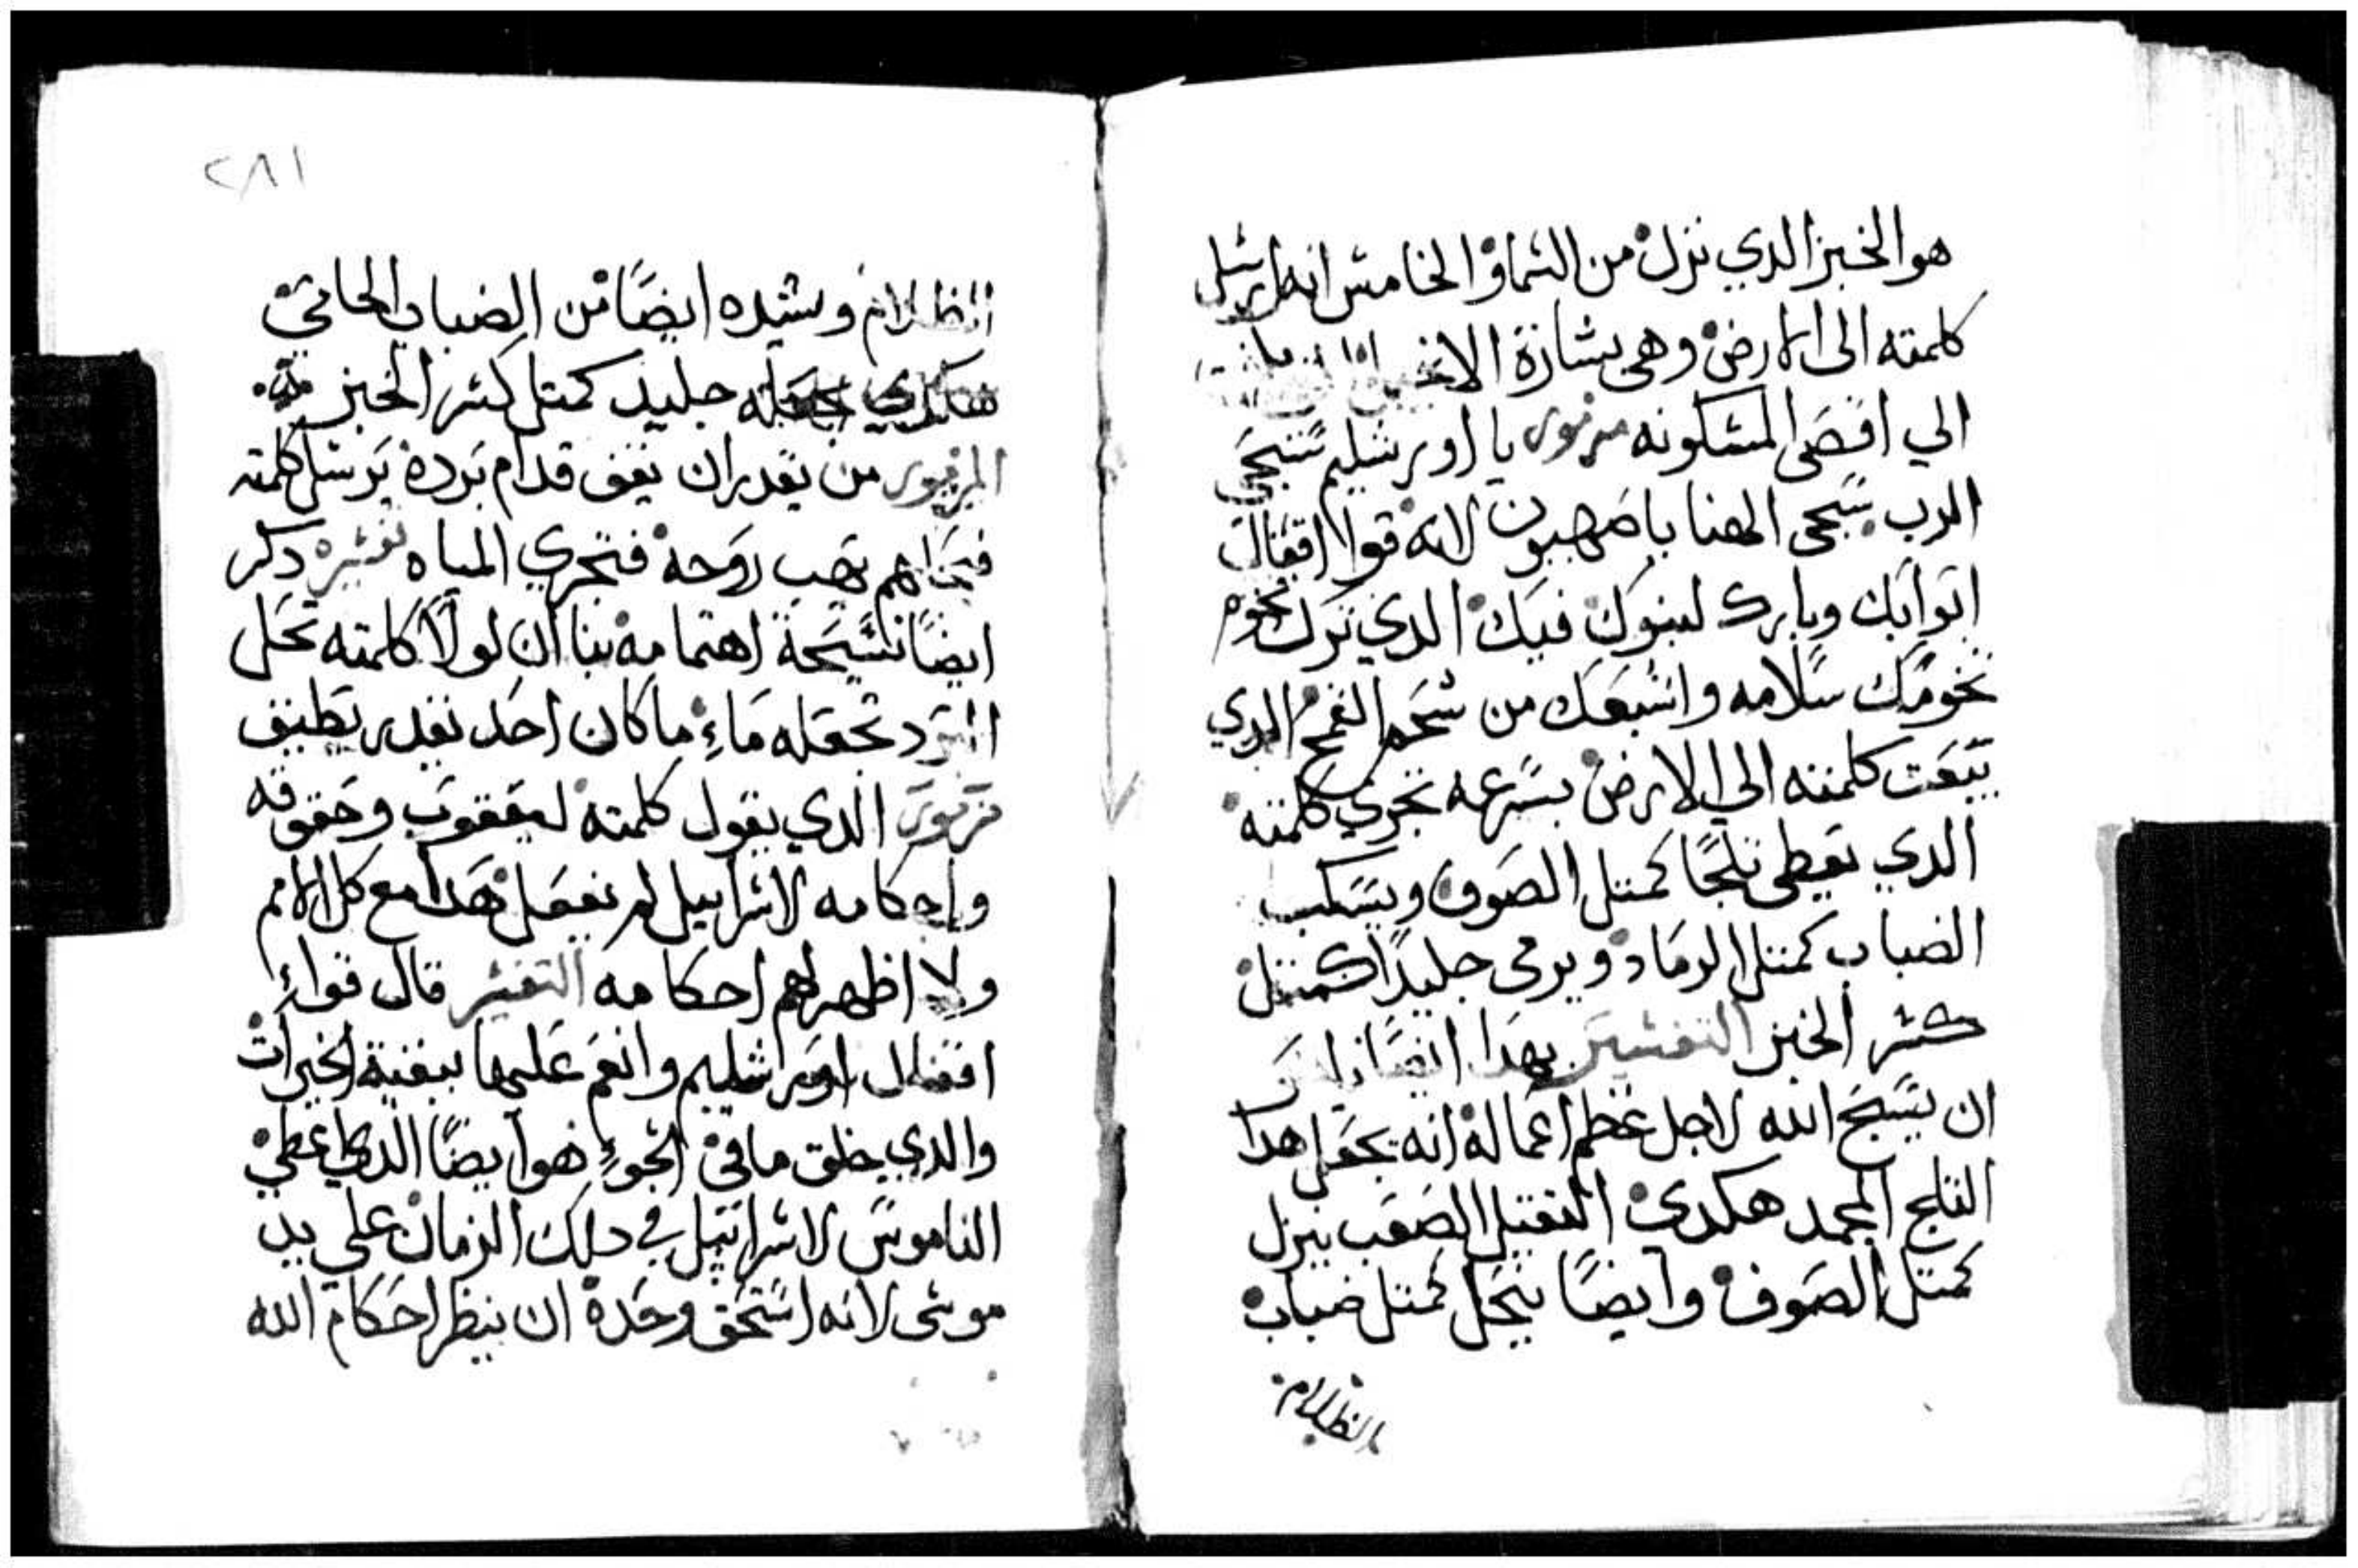 هو الخبز الدي نزل من السما والخامس انه ارسل
كلمته الى الارض وهي بشارة
الي اقصى المسكونه مزمور يا اورشليم سبحي
الرب سبحى الهنا يا صهيون لانه قوا اقفال
ابوابك وبارك لبنوك فيك الدي ترك تخوم
تخومك سلامه واشبعك من شحم القمح الدي
يبعت كلمته الي الارض بسرعه تجري كلمته
الدي يعطى تلجًا كمتل الصوف ويسكب
الضباب كمتل الرماد ويرمى جليدًا كمتل
كسر الخبز التفسير بهدا ايضًا
ان يسبح الله لاجل عظم اعماله انه يجعل هدا
التلج المجمد هكدي التقيل الصعب ينزل
كمتل الصوف وايضًا ينحل كمتل ضباب
الظلام
٢٨١
الظلام ويشيده ايضًا من الضباب الحاتي
هكدي يجعله جليد كمتل كسر الخبز
المزمور من يقدر ان يقف قدام برده يرسل كلمته
تهب روحه فتجري المياه تفسيره دكر
ايضًا نسيحة اهتمامه بنا ان لولا كلمته تحل
البرد تجعله ماء ما كان احد يقدر يطيق
مزمور الدي يقول كلمته ليعقوب وحقوقه
واحكامه لاسراييل لم يفعل هدا مع كل الامم
ولا اظهر لهم احكامه التفسير قال قواء
اقفال اوراشليم وانعم عليها ببقية الخيرات
والدي خلق ما في الجوء هو ايضًا الدي اعطي
الناموس لاسراييل في دلك الزمان علي يد
موسى لانه استحق وحده ان ينظر احكام الله